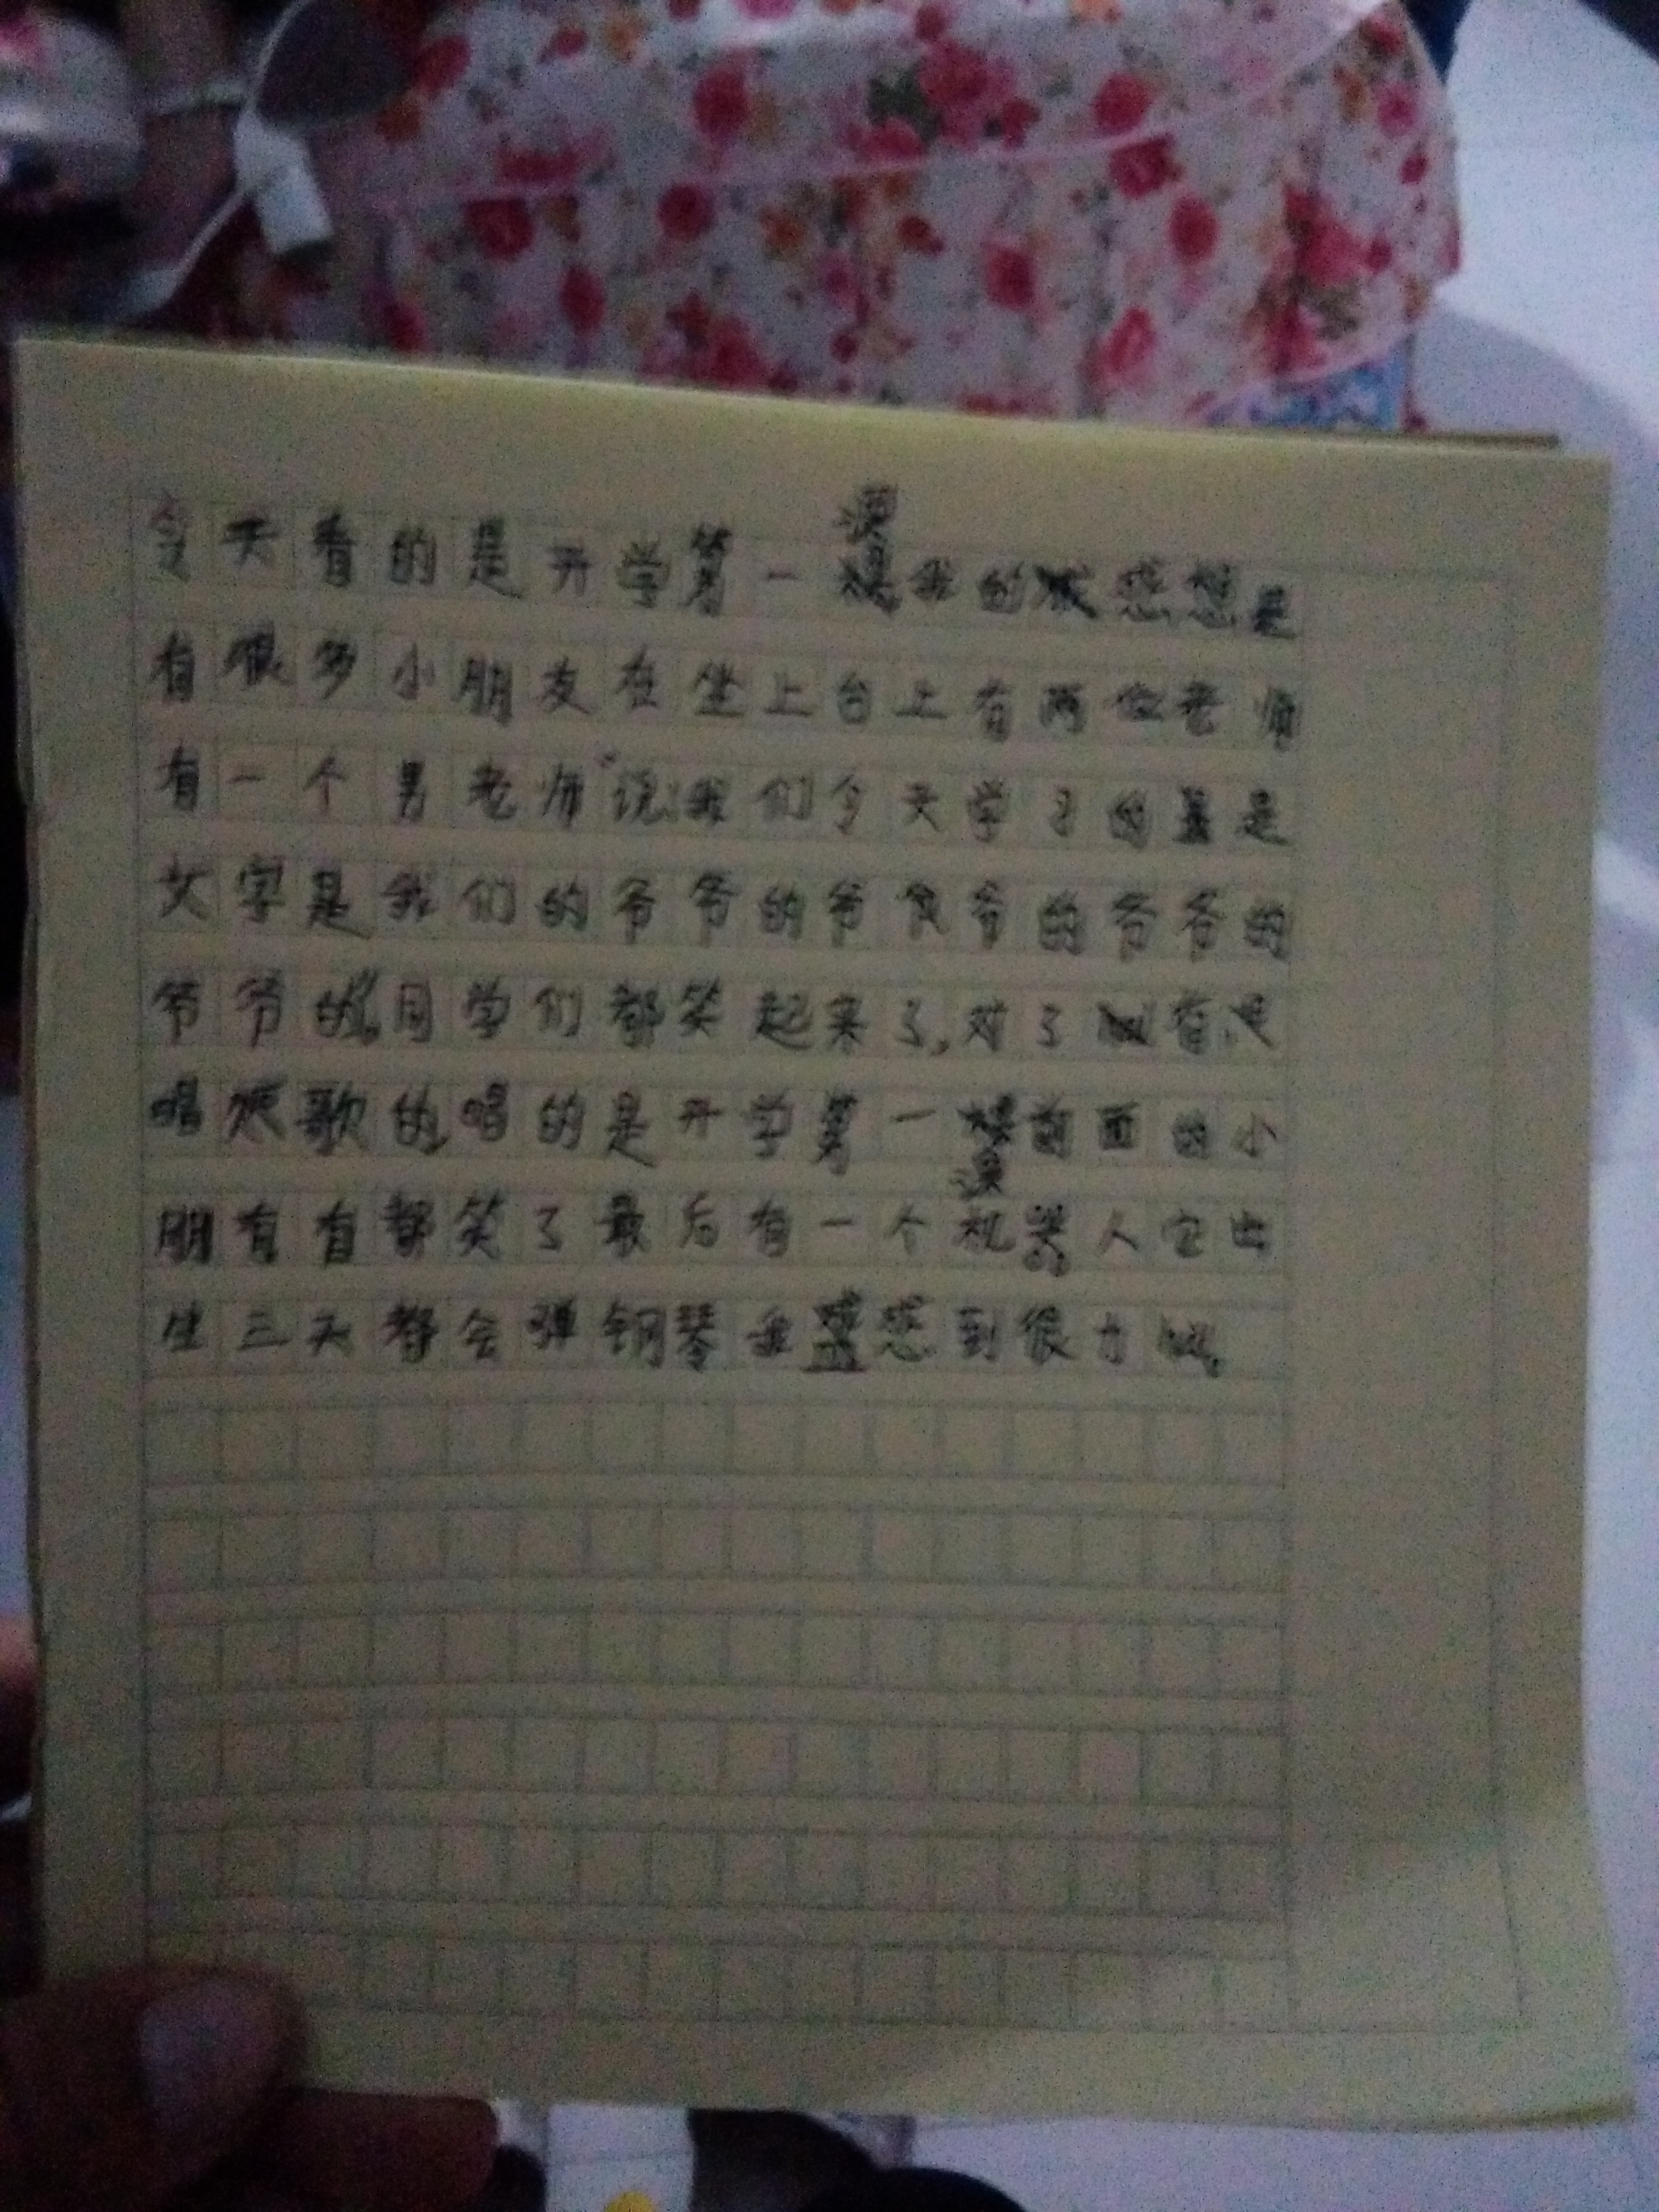 今天看的是开学第一课我的感想是
有很多小朋友在坐上台上有两位老师
有一个男老师"说:我们今天学习的是
文字是我们的爷爷的爷爷爷的爷爷的
爷爷的"。同学们都笑起来了,对了看见
唱歌的,唱的是开学第一课前面的小
朋有有都笑了最后有一个机器人它出
生三天都会弹钢琴我感到很